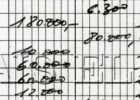 6.300
180.000,-
80.000,-
60.000
60.000
12.000